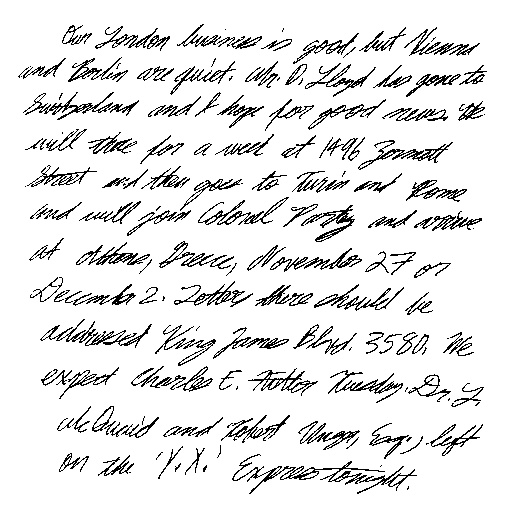 Our London business is good, but Vienna
and Berlin are quiet. Mr. D. Lloyd has gone to
Switzerland and I hope for good news. He
will there for a week at 1496 Zermott
Street and then goes to Turin and Rome
and will join Colonel Parry and arrive
at Athens, Greece, November 27 or
December 2. Letters there should be
addressed King James Blvd. 3580. We
expect Charles E. Fuller Tuesday. Dr. L.
McQuaid and Robert Unger, Esq., left
on the 'Y.X.' Express tonight.